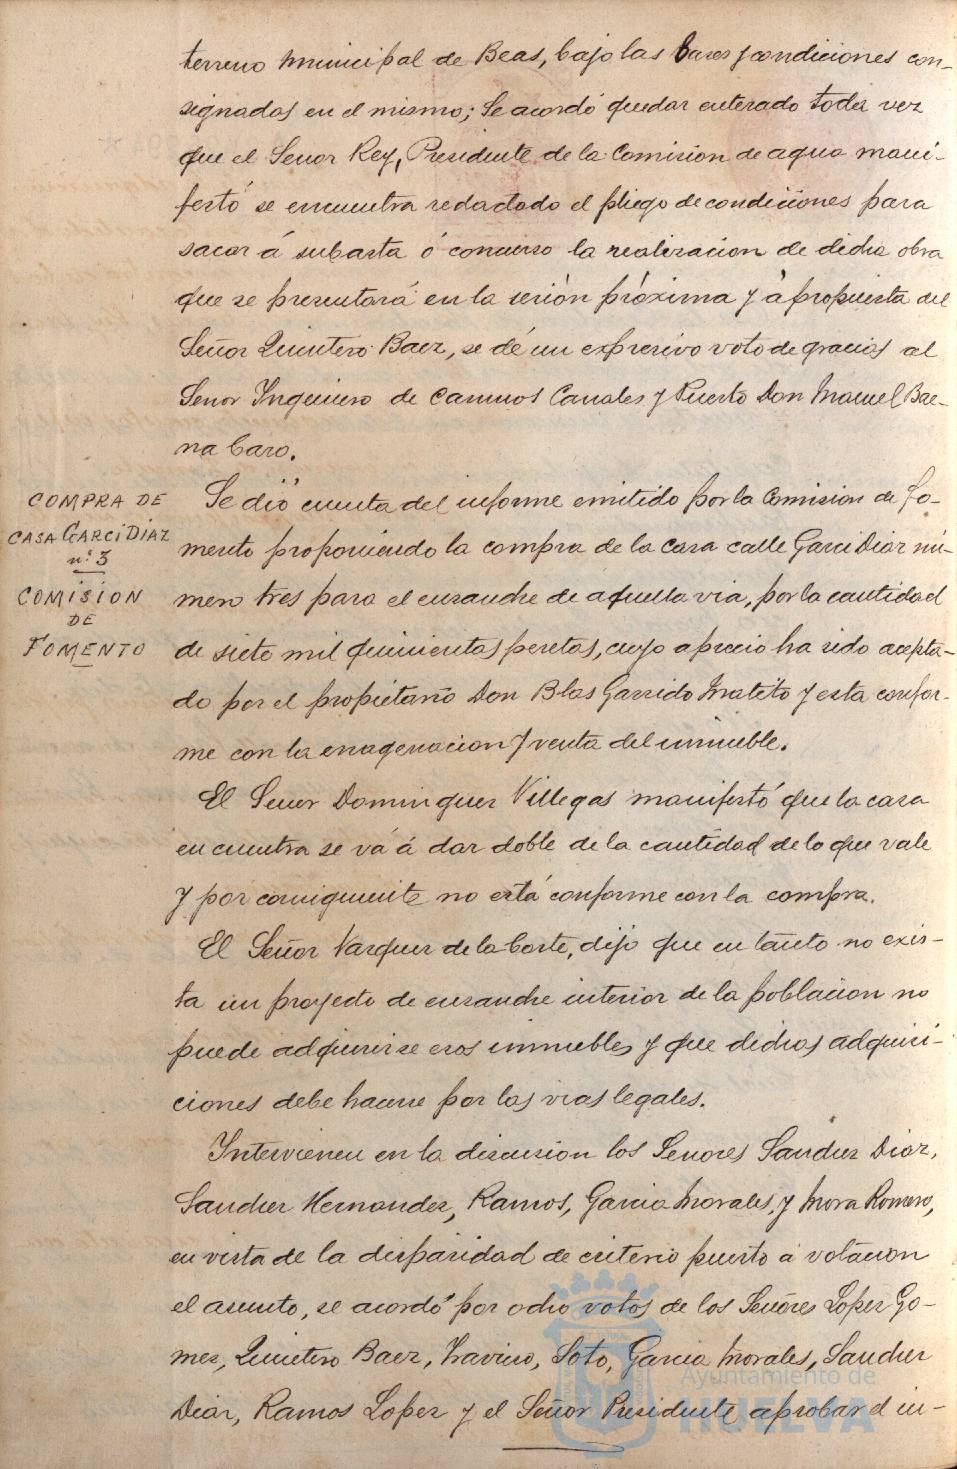 terreno Municipal de Beas, bajo las bases y condiciones con-
signadas en el mismo; Se acordó quedar enterado toda vez
que el Señor Rey, Presidente de la Comision de agua mani-
festó se encuentra redactado el pliego de condiciones para
sacar á subasta ó concurso la realizacion de dicha obra
que se presentará en la sesión próxima y á propuesta del
Señor Quintero Baez, se dé un expresivo voto de gracias al
Señor Ingeniero de Caminos Canales y Puerto Don Manuel Bae-
na Caro.
COMPRA DE
CASA GARCI DIAZ
nº 3
COMISION
DE
FOMENTO
Se dió cuenta del informe emitido por la Comision de Fo-
mento proponiendo la compra de la casa calle Garci Diaz nú-
mero tres para el ensanche de aquella via, por la cantidad
de siete mil quinientas pesetas, cuyo aprecio ha sido acepta-
do por el propietario Don Blas Garrido Matito y esta confor-
me con la enagenacion y venta del inmueble.
El Señor Dominguez Villegas manifestó que la casa
en cuentra se vá á dar doble de la cantidad de lo que vale
y por consiguiente no está conforme con la compra.
El Señor Vazquez de la Corte, dijo que en tanto no exis-
ta un proyecto de ensanche interior de la poblacion no
puede adquirirse esos inmuebles y que dichas adquisi-
ciones debe hacerse por las vias legales.
Intervienen en la discusion los Señores Sanchez Diaz,
Sanchez Hernandez, Ramos, Garcia Morales, y Mora Romero,
en vista de la disparidad de criterio puesto á votacion
el asunto, se acordó por ocho votos de los Señores Lopez Go-
mez, Quintero Baez, Traviso, Soto, Garcia Morales, Sanchez
Diaz, Ramos Lopez y el Señor Presidente aprobar el in-
Ayuntamiento de
HUELVA